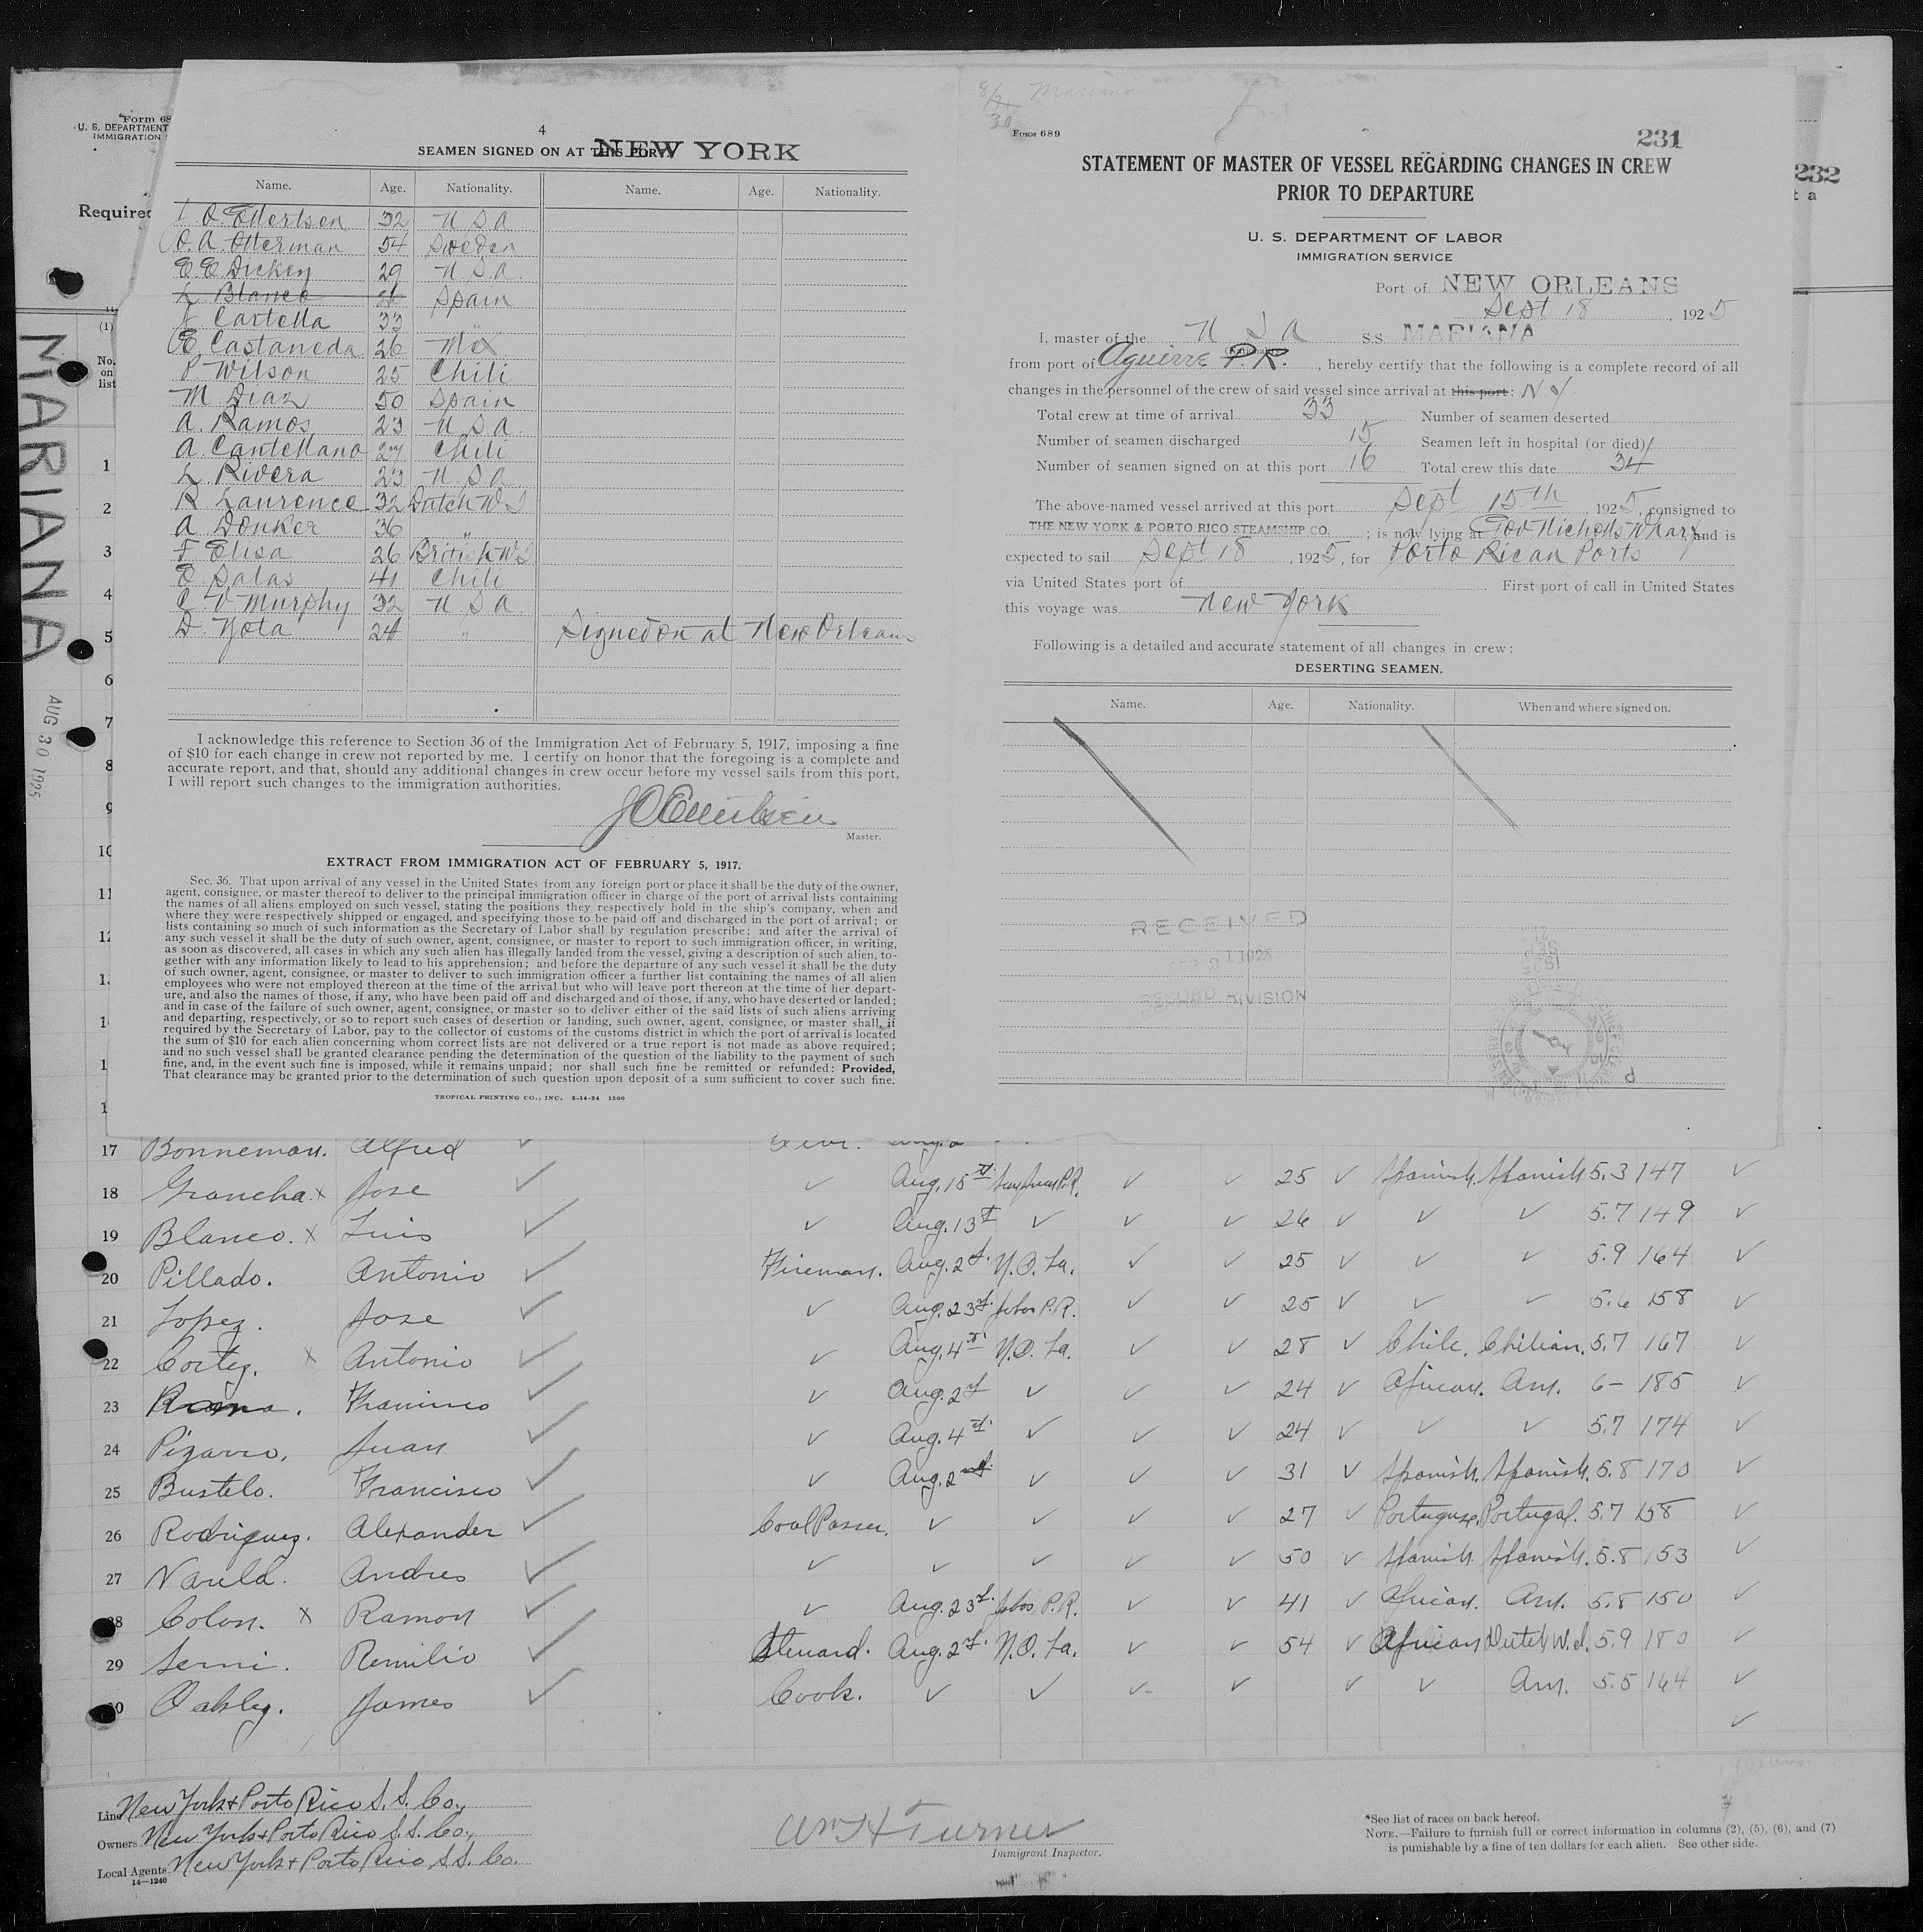 4
SEAMEN SIGNED ON AT THIS PORT NEW YORK
Name. Age. Nationality. Name. Age. Nationality.
32 U S A
O. A. Otterman 54 Sweden
E. E. Dickey 29 U.S.A.
L. Blanco 26 Spain
Cartella 33 "
E. Castaneda 26 Mex
P. Wilson 25 Chili
M. Diaz 50 Spain
A. Ramos 23 U S A
A. Cantellano 27 Chili
L. Rivera 23 U S A
R. Laurence 32 Dutch W I
A. Donker 36 "
F. Elisa 26 British W I
E. Salas 41 Chili
C. V. Murphy 32 U S A
D. Yota 24 " Signed on at New Orleans
I acknowledge this reference to Section 36 of the Immigration Act of February 5, 1917, imposing a fine
of $10 for each change in crew not reported by me. I certify on honor that the foregoing is a complete and
accurate report, and that, should any additional changes in crew occur before my vessel sails from this port,
I will report such changes to the immigration authorities.
Master.
EXTRACT FROM IMMIGRATION ACT OF FEBRUARY 5, 1917.
Sec. 36. That upon arrival of any vessel in the United States from any foreign port or place it shall be the duty of the owner,
agent, consignee, or master thereof to deliver to the principal immigration officer in charge of the port of arrival lists containing
the names of all aliens employed on such vessel, stating the positions they respectively hold in the ship's company, when and
where they were respectively shipped or engaged, and specifying those to be paid off and discharged in the port of arrival; or
lists containing so much of such information as the Secretary of Labor shall by regulation prescribe; and after the arrival of
any such vessel it shall be the duty of such owner, agent, consignee, or master to report to such immigration officer, in writing,
as soon as discovered, all cases in which any such alien has illegally landed from the vessel, giving a description of such alien, to-
gether with any information likely to lead to his apprehension; and before the departure of any such vessel it shall be the duty
of such owner, agent, consignee, or master to deliver to such immigration officer a further list containing the names of all alien
employees who were not employed thereon at the time of the arrival but who will leave port thereon at the time of her depart-
ure, and also the names of those, if any, who have been paid off and discharged and of those, if any, who have deserted or landed;
and in case of the failure of such owner, agent, consignee, or master so to deliver either of the said lists of such aliens arriving
and departing, respectively, or so to report such cases of desertion or landing, such owner, agent, consignee, or master shall, if
required by the Secretary of Labor, pay to the collector of customs of the customs district in which the port of arrival is located
the sum of $10 for each alien concerning whom correct lists are not delivered or a true report is not made as above required;
and no such vessel shall be granted clearance pending the determination of the question of the liability to the payment of such
fine, and, in the event such fine is imposed, while it remains unpaid; nor shall such fine be remitted or refunded: Provided,
That clearance may be granted prior to the determination of such question upon deposit of a sum sufficient to cover such fine.
TROPICAL PRINTING CO., INC. 5-14-24 1500
Mariana
FORM 689
231
STATEMENT OF MASTER OF VESSEL REGARDING CHANGES IN CREW
PRIOR TO DEPARTURE
U. S. DEPARTMENT OF LABOR
IMMIGRATION SERVICE
Port of NEW ORLEANS
Sept 18, 1925
I, master of the U S A S.S. MARIANA
(Nationality)
from port of Aguirre P.R., hereby certify that the following is a complete record of all
changes in the personnel of the crew of said vessel since arrival at this port: N.Y
Total crew at time of arrival 33 Number of seamen deserted
Number of seamen discharged 15 Seamen left in hospital (or died)
Number of seamen signed on at this port 16 Total crew this date 34
The above-named vessel arrived at this port Sept 15th, 1925, consigned to
THE NEW YORK & PORTO RICO STEAMSHIP CO.; is now lying at Gov Nicholls Wharf and is
expected to sail Sept 18, 1925, for Porto Rican Ports
via United States port of First port of call in United States
this voyage was New York
Following is a detailed and accurate statement of all changes in crew:
DESERTING SEAMEN.
Name. Age. Nationality. When and where signed on.
RECEIVED
RECORD DIVISION
Form 68
U. S. DEPARTMENT
IMMIGRATION
Required
232
t a
(1)
No.
on
list
MARIANA
AUG 30 1925
1
2
3
4
5
6
7
8
9
10
11
12
13
1
1
1
17 Bonneman. Alfred ✓
18 x Jose ✓ ✓ Aug. 15 San Juan P.R. ✓ ✓ 25 ✓ Spanish. Spanish 5.3 147 ✓
19 Blanco. x Luis ✓ ✓ Aug. 13 ✓ ✓ ✓ 26 ✓ ✓ ✓ 5.7 149 ✓
20 Pillado. Antonio ✓ Fireman. Aug. 2 N.O. La. ✓ ✓ 25 ✓ ✓ ✓ 5.9 164 ✓
21 Lopez. Jose ✓ ✓ Aug. 23 Jobos P.R. ✓ ✓ 25 ✓ ✓ ✓ 5.6 158 ✓
22 Cortez. x Antonio ✓ ✓ Aug. 4 N.O. La. ✓ ✓ 28 ✓ Chile. Chilian. 5.7 167 ✓
23 Francisco ✓ ✓ Aug. 2 ✓ ✓ ✓ 24 ✓ African. Am. 6- 185 ✓
24 Pizarro. Juan ✓ ✓ Aug. 4 ✓ ✓ ✓ 24 ✓ ✓ ✓ 5.7 174 ✓
25 Bustelo. Francisco ✓ ✓ Aug. 2 ✓ ✓ ✓ 31 ✓ Spanish. Spanish. 5.8 170 ✓
26 Rodriguez. Alexander ✓ Coal Passer. ✓ ✓ ✓ ✓ 27 ✓ Portuguse. Portugal. 5.7 158 ✓
27 Varela. Andres ✓ ✓ ✓ ✓ ✓ ✓ 50 ✓ Spanish. Spanish. 5.8 153 ✓
28 Colon. x Ramon ✓ ✓ Aug. 23 Jobos P.R. ✓ ✓ 41 ✓ African. Am. 5.8 150 ✓
29 Remilio ✓ Steward. Aug. 2 N.O. La. ✓ ✓ 54 ✓ African Dutch W.I. 5.9 180 ✓
30 Oakley. James ✓ Cook. ✓ ✓ ✓ ✓ ✓ ✓ Am. 5.5 164 ✓
✓
Line New York & Porto Rico S.S. Co.,
Owners New York & Porto Rico S.S. Co.,
Local Agents New York & Porto Rico S.S. Co.
14—1240
Wm H Turner
Immigrant Inspector.
*See list of races on back hereof.
NOTE.—Failure to furnish full or correct information in columns (2), (5), (6), and (7)
is punishable by a fine of ten dollars for each alien. See other side.